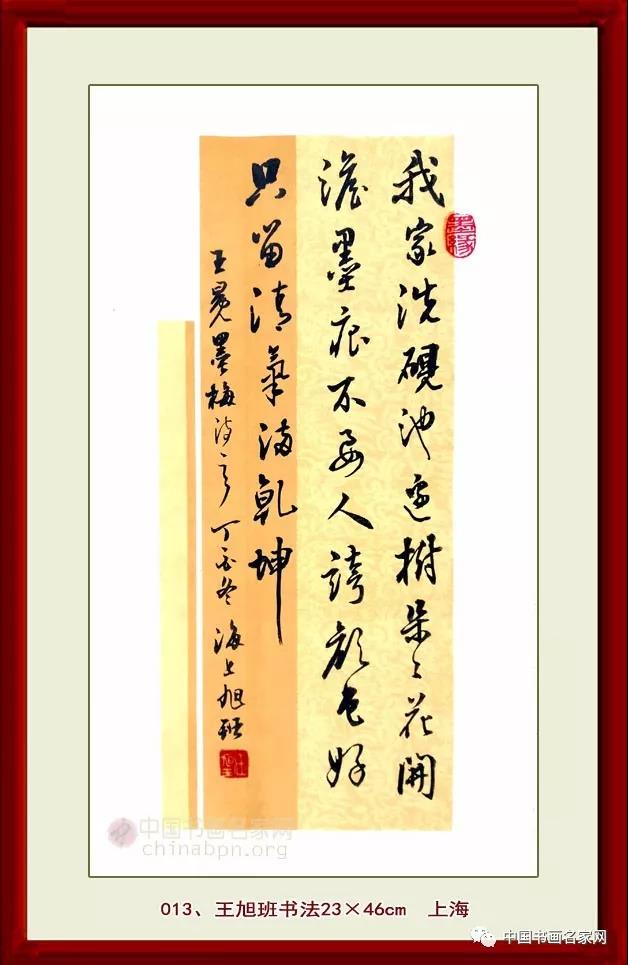 墨緣
我家洗硯池邊樹朵々花開
澹墨痕不要人誇顏色好
只留清氣滿乾坤
王冕墨梅詩 丁酉冬 海上旭班
中国书画名家网
chinabpn.org
013、王旭班书法23×46cm 上海
中国书画名家网